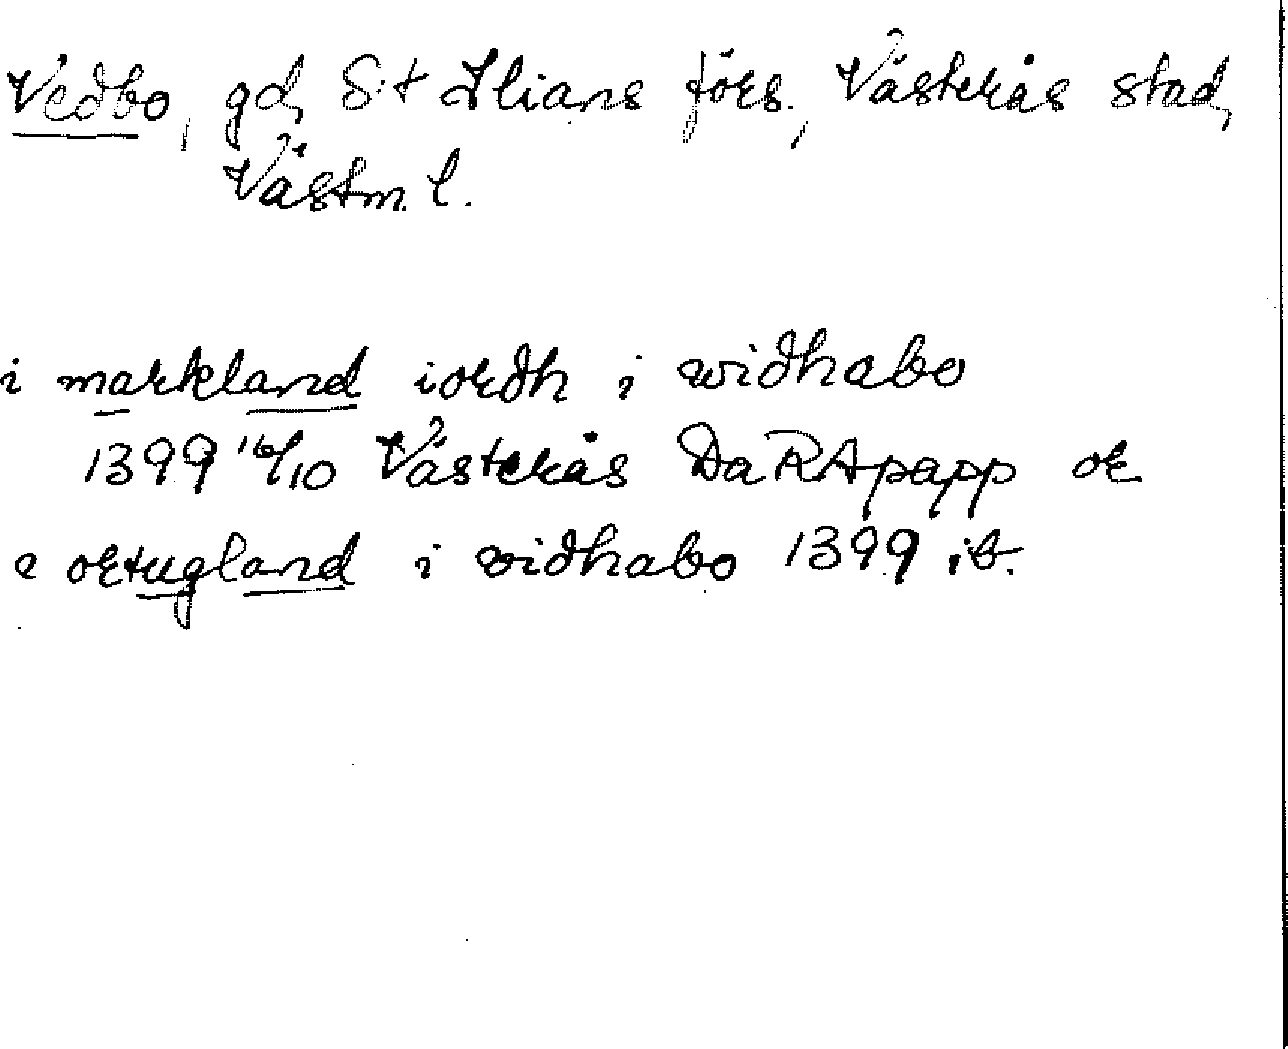 Vedbo, gd, S:t Ilians förs., Västerås stad,
Västm. l.
i markland iordh i widhabo
1399 16/10 Västerås Da RApapp or
2 ortugland i widhabo 1399 ib.